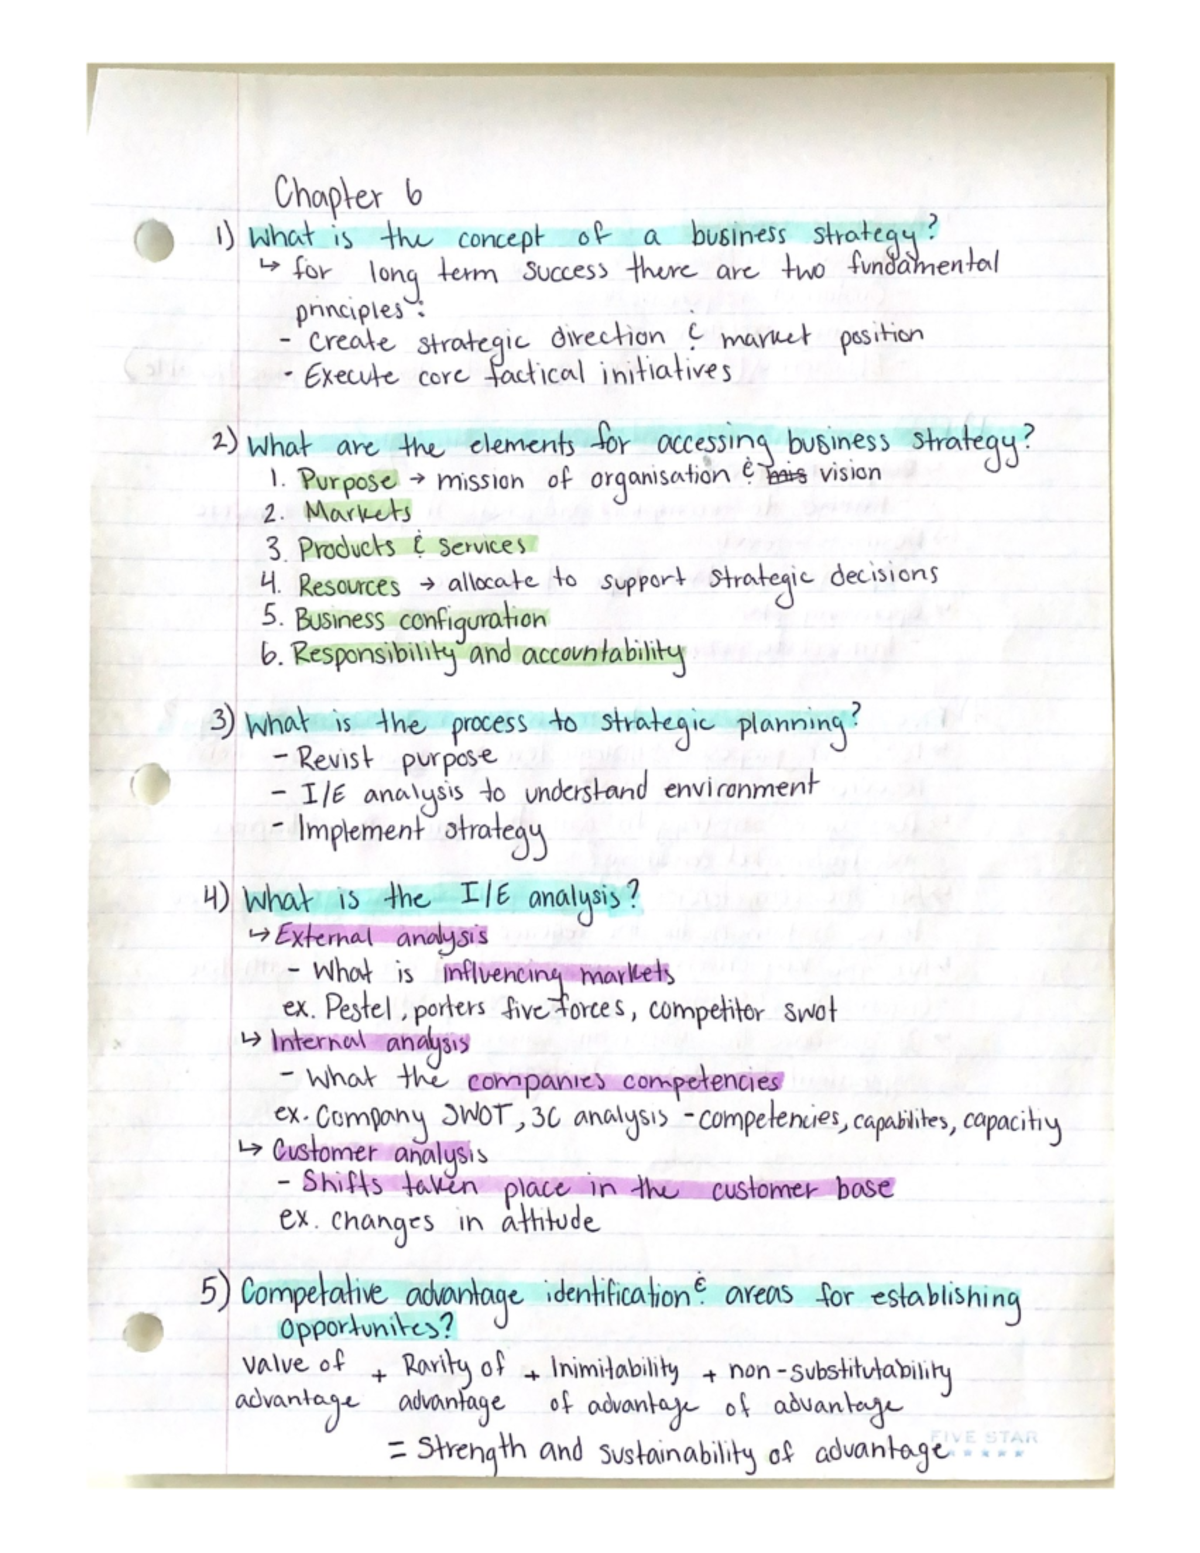 Chapter 6
1) What is the concept of a business strategy?
↳ for long term success there are two fundamental
principles:
- Create strategic direction & market position
- Execute core tactical initiatives
2) What are the elements for accessing business strategy?
1. Purpose → mission of organisation & mis vision
2. Markets
3. Products & services
4. Resources → allocate to support strategic decisions
5. Business configuration
6. Responsibility and accountability
3) What is the process to strategic planning?
- Revist purpose
- I/E analysis to understand environment
- Implement strategy
4) What is the I/E analysis?
↳ External analysis
- What is influencing markets
ex. Pestel, porters five forces, competitor swot
↳ Internal analysis
- What the companies competencies
ex. Company SWOT, 3C analysis - competencies, capabilites, capacitiy
↳ Customer analysis
- Shifts taken place in the customer base
ex. changes in attitude
5) Competative advantage identification & areas for establishing
opportunites?
value of + Rarity of + Inimitability + non-substitutability
advantage advantage of advantage of advantage
= Strength and sustainability of advantage
FIVE STAR